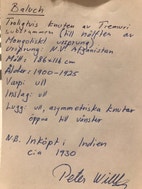 Baluch
knuten av Timuri
(till hälften av
Mongoliskt ursprung)
Ursprung: N.V. Afghanistan
Mått: 186x116 cm
Ålder: 1900-1925
Varp: ull
Inslag: ull
Lugg: ull, asymmetriska knutar
öppna till vänster
N.B. Inköpt i Indien
c:a 1930
Peter Willb